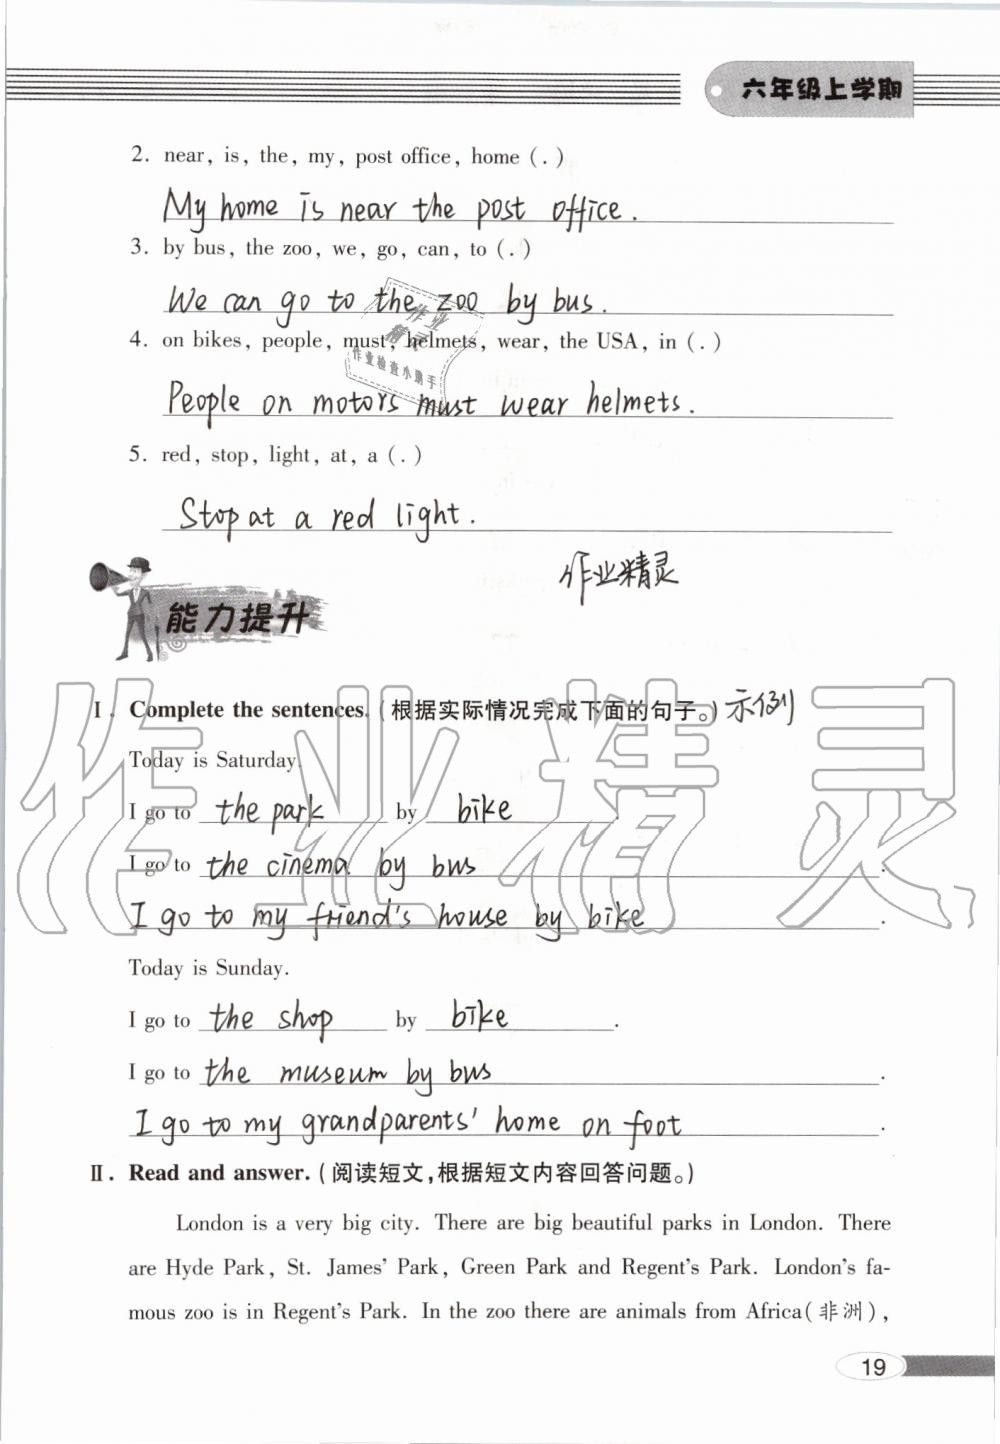 六年级上学期
2. near, is, the, my, post office, home (.)
My home is near the post office.
3. by bus, the zoo, we, go, can, to (.)
We can go to the zoo by bus.
4. on bikes, people, must, helmets, wear, the USA, in (.)
People on motors must wear helmets.
5. red, stop, light, at, a (.)
Stop at a red light.
作业精灵
作业检查小助手
作业精灵
能力提升
Ⅰ. Complete the sentences. (根据实际情况完成下面的句子。) 示例
Today is Saturday.
I go to the park by bike.
I go to the cinema by bus.
I go to my friend's house by bike.
Today is Sunday.
I go to the shop by bike.
I go to the museum by bus.
I go to my grandparents' home on foot.
Ⅱ. Read and answer. (阅读短文,根据短文内容回答问题。)
London is a very big city. There are big beautiful parks in London. There
are Hyde Park, St. James' Park, Green Park and Regent's Park. London's fa-
mous zoo is in Regent's Park. In the zoo there are animals from Africa(非洲),
19
作业精灵